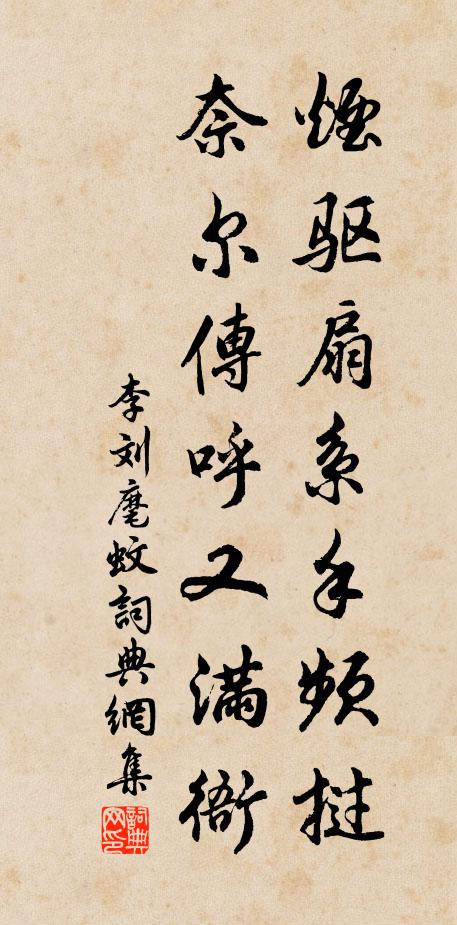 烟驱扇系手频挞
奈尔傳呼又滿衙
李刘麾蚊詞典網集
詞典网印